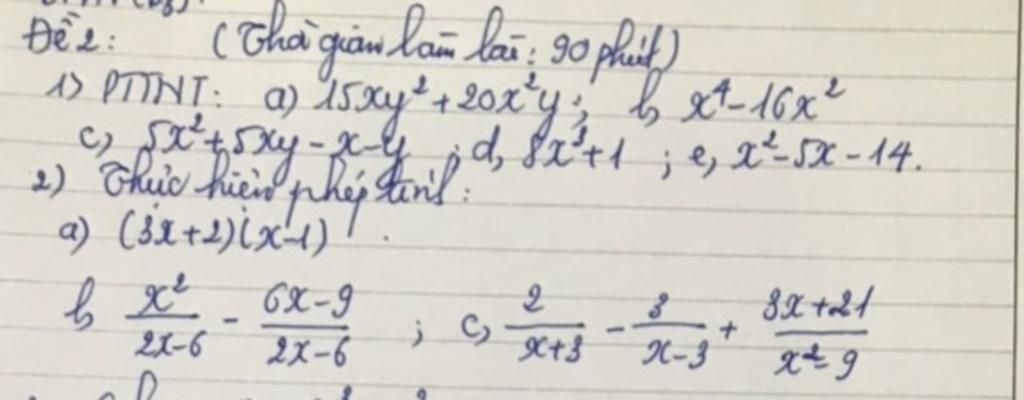 Đề 2: (Thời gian làm bài: 90 phút)
1) PTTNT: a) 15xy² + 20x²y; b, x⁴ - 16x²
c, 5x² + 5xy - x - y ; d, 8x³ + 1 ; e, x² - 5x - 14.
2) Thực hiện phép tính:
a) (3x + 2)(x - 1)
b x²/(2x - 6) - (6x - 9)/(2x - 6) ; c, 2/(x + 3) - 3/(x - 3) + (3x + 21)/(x² - 9)